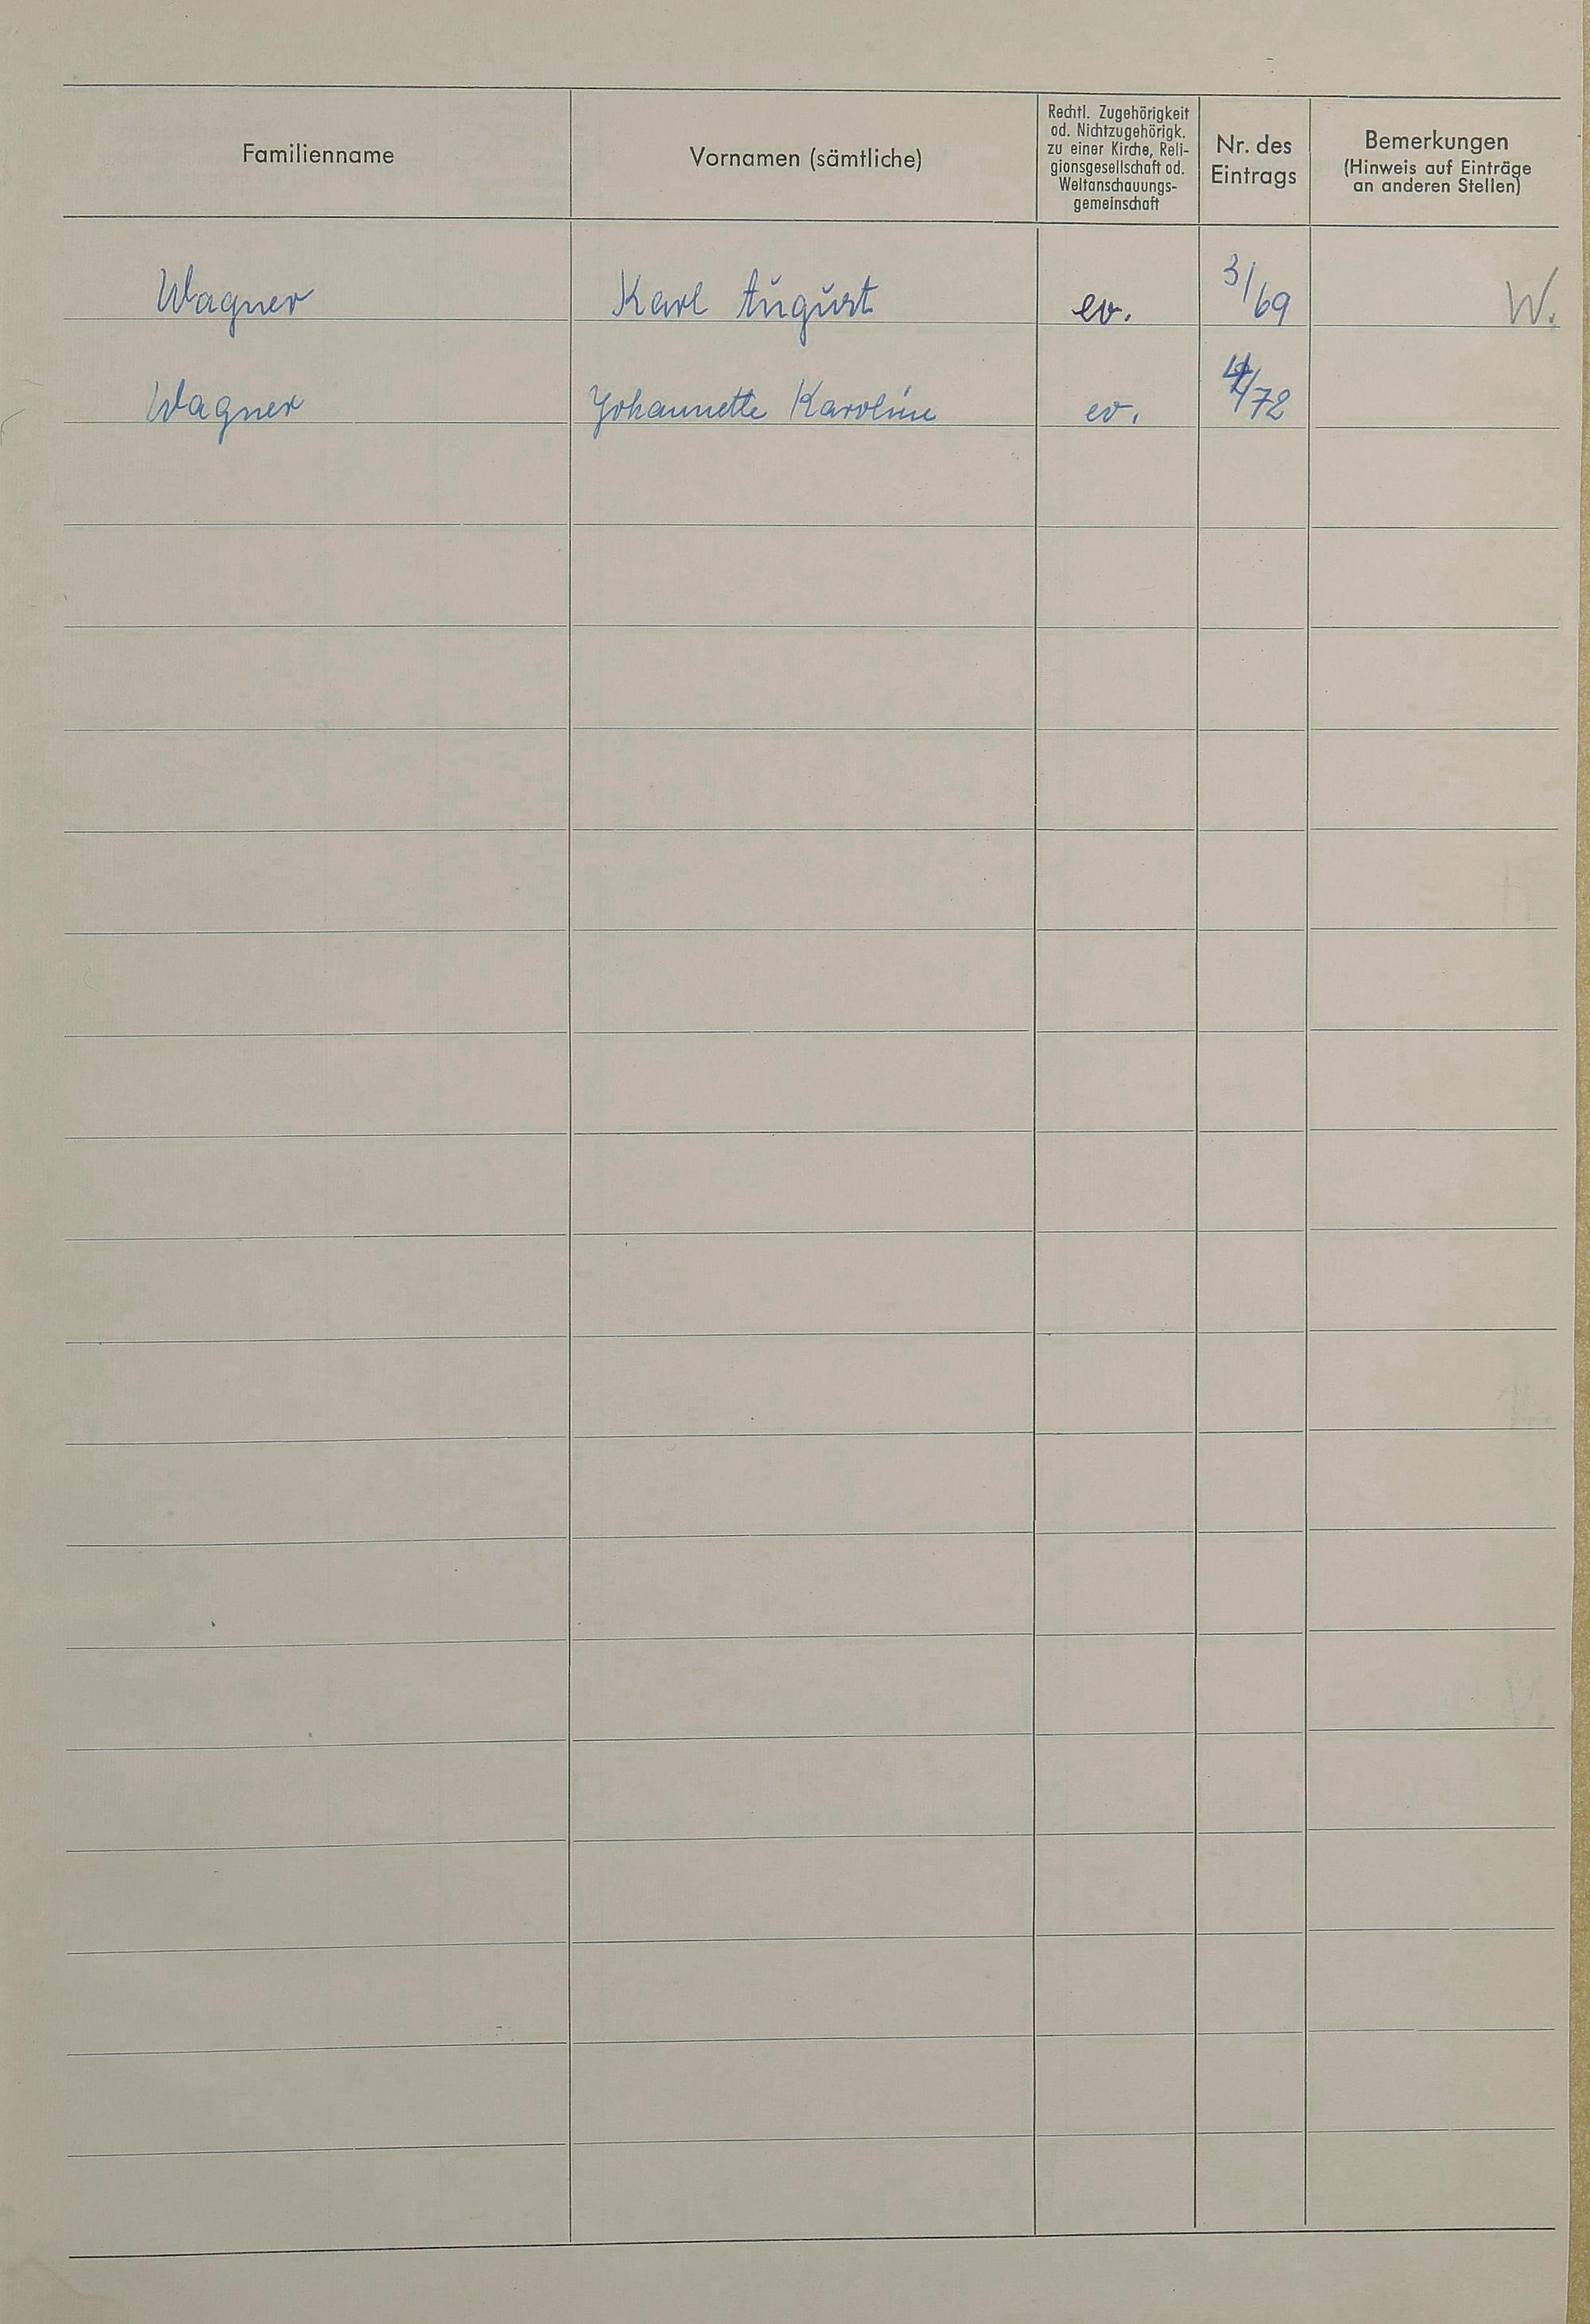 Familienname
Vornamen (sämtliche)
Rechtl. Zugehörigkeit
od. Nichtzugehörigk.
zu einer Kirche, Reli-
gionsgesellschaft od.
Weltanschauungs-
gemeinschaft
Nr. des
Eintrags
Bemerkungen
(Hinweis auf Einträge
an anderen Stellen)
Wagner Karl August ev. 3/69 W.
Wagner Johannette Karoline ev. 4/72